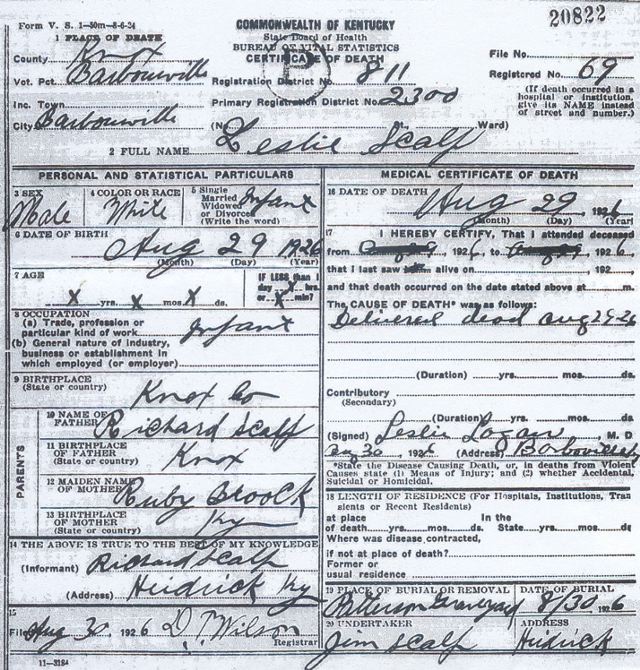 Form V. S. 1-50m-8-6-24
COMMONWEALTH OF KENTUCKY
20822
1 PLACE OF DEATH
State Board of Health
BUREAU OF VITAL STATISTICS
CERTIFICATE OF DEATH
County Knox
File No.
Vot. Pct. Barbourville
Registration District No. 811
Registered No. 69
Inc. Town
Primary Registration District No. 2300
(If death occurred in a hospital or institution, give its NAME instead of street and number.)
City Barbourville
(No. St. Ward)
2 FULL NAME Leslie Scalf
PERSONAL AND STATISTICAL PARTICULARS
3 SEX Male
4 COLOR OR RACE White
5 Single Married Widowed or Divorced (Write the word) Infant
6 DATE OF BIRTH Aug 29 1926
(Month) (Day) (Year)
7 AGE
x yrs. x mos. x ds.
IF LESS than 1 day x hrs. or x min?
8 OCCUPATION
(a) Trade, profession or particular kind of work Infant
(b) General nature of industry, business or establishment in which employed (or employer)
9 BIRTHPLACE (State or country) Knox Co
PARENTS
10 NAME OF FATHER Richard Scalf
11 BIRTHPLACE OF FATHER (State or country) Knox
12 MAIDEN NAME OF MOTHER Ruby Broock
13 BIRTHPLACE OF MOTHER (State or country) Ky
14 THE ABOVE IS TRUE TO THE BEST OF MY KNOWLEDGE
(Informant) Richard Scalf
(Address) Heidrick Ky
15
Filed Aug 30 1926 D. T. Wilson
Registrar
11-3184
MEDICAL CERTIFICATE OF DEATH
16 DATE OF DEATH Aug 29 1926
(Month) (Day) (Year)
17 I HEREBY CERTIFY, That I attended deceased
from 1926, to 1926
that I last saw alive on 192
and that death occurred on the date stated above at m.
The CAUSE OF DEATH* was as follows:
Delivered dead Aug 29-26
(Duration) yrs. mos. ds.
Contributory
(Secondary)
(Duration) yrs. mos. ds.
(Signed) Leslie Logan, M. D.
Aug 30 1926 (Address) Barbourville
*State the Disease Causing Death, or, in deaths from Violent Causes state (1) Means of Injury; and (2) whether Accidental, Suicidal or Homicidal.
18 LENGTH OF RESIDENCE (For Hospitals, Institutions, Transients or Recent Residents)
at place of death yrs. mos. ds. In the State yrs. mos. ds
Where was disease contracted,
if not at place of death?
Former or usual residence
19 PLACE OF BURIAL OR REMOVAL Patterson Graveyard
DATE OF BURIAL 8/30 1926
20 UNDERTAKER Jim Scalf
ADDRESS Heidrick